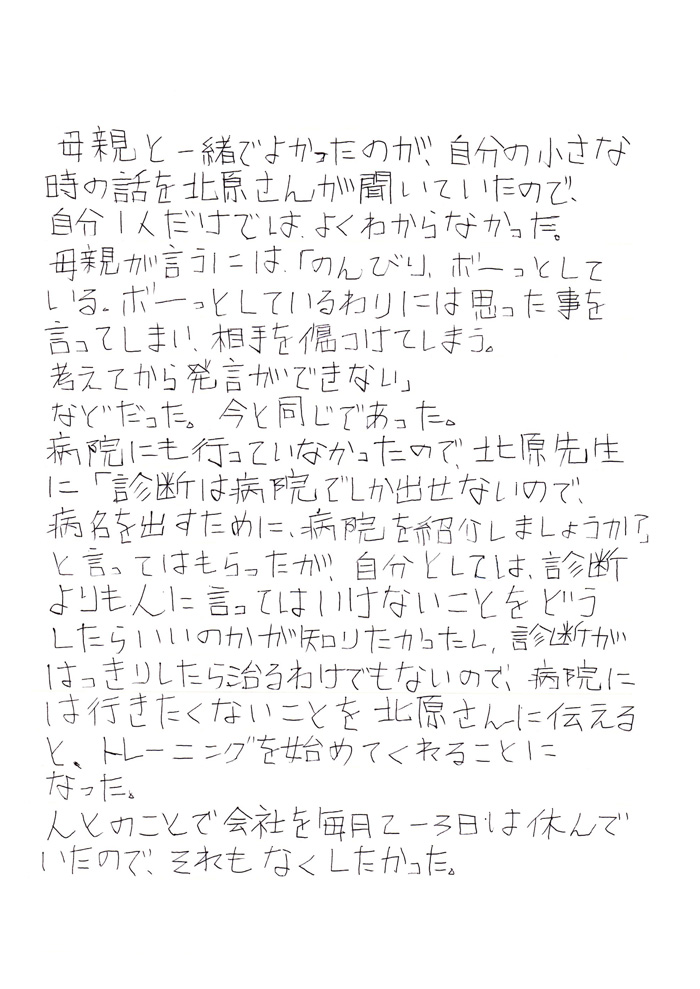 母親と一緒でよかったのが、自分の小さな
時の話を北原さんが聞いていたので、
自分1人だけでは、よくわからなかった。
母親が言うには、「のんびり、ボーっとして
いる。ボーっとしているわりには思った事を
言ってしまい、相手を傷つけてしまう。
考えてから発言ができない」
などだった。今と同じであった。
病院にも行っていなかったので、北原先生
に「診断は病院でしか出せないので、
病名を出すために、病院を紹介しましょうか?」
と言ってはもらったが、自分としては、診断
よりも人に言ってはいけないことをどう
したらいいのかが知りたかったし、診断が
はっきりしたら治るわけでもないので、病院に
は行きたくないことを北原さんに伝える
と、トレーニングを始めてくれることに
なった。
人とのことで会社を毎月2-3日は休んで
いたので、それもなくしたかった。